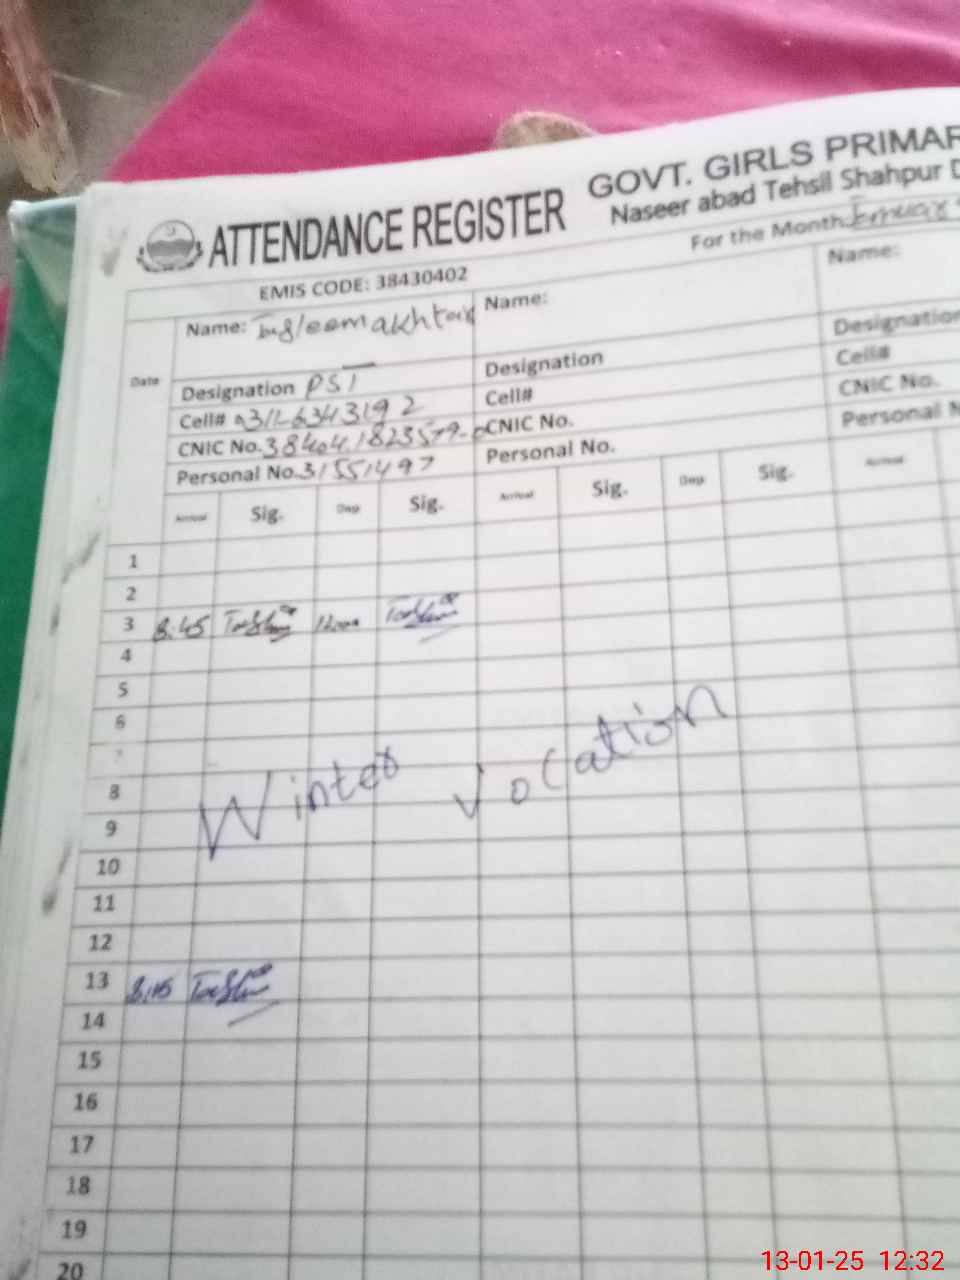 ATTENDANCE REGISTER
GOVT. GIRLS PRIMAR
Naseer abad Tehsil Shahpur D
For the Month
EMIS CODE: 38430402
Date
Name: akhtar
Designation PST
Cell#
CNIC No.
Personal No. 31551497
Name:
Designation
Cell#
CNIC No.
Personal No.
Name:
Designation
Cell#
CNIC No.
Personal N
Arrival Sig. Dep Sig. Arrival Sig. Dep Sig. Arrival
1
2
3 8:45
4
5
6
7
Winter Vocation
8
9
10
11
12
13
14
15
16
17
18
19
20
13-01-25 12:32